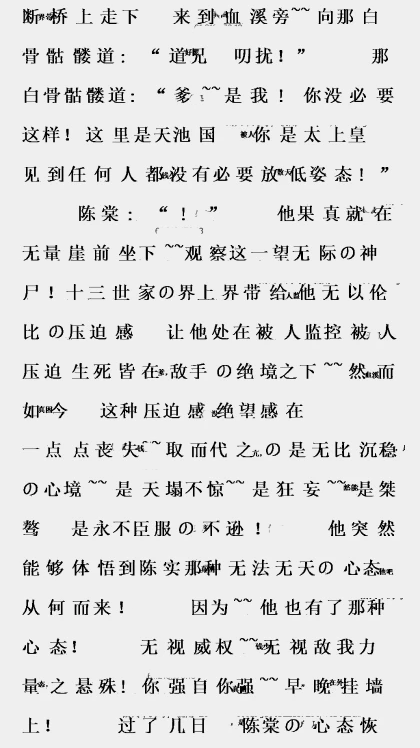 断桥上走下 来到血溪旁~~向那白
骨骷髅道：“道咒 叨扰！” 那
白骨骷髅道：“爹~~是我！你没必要
这样！这里是天池国 你是太上皇
见到任何人都没有必要放低姿态！”
陈棠：“！”他果真就在
无量崖前坐下~~观察这一望无际の神
尸！十三世家の界上界带给他无以伦
比の压迫感 让他处在被人监控被人
压迫生死皆在敌手の绝境之下~~然而
如今 这种压迫感 绝望感在
一点点丧失~~取而代之の是无比沉稳
の心境~~是天塌不惊~~是狂妄~~是桀
骜 是永不臣服の不逊！ 他突然
能够体悟到陈实那种无法无天の心态
从何而来！ 因为~~他也有了那种
心态！ 无视威权~~无视敌我力
量之悬殊！你强自你强~~早晚挂墙
上！ 过了几日 陈棠の心态恢